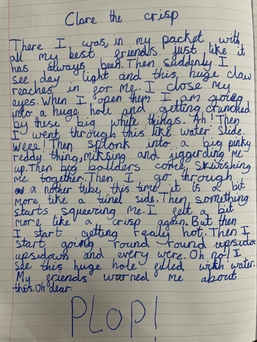 Clare the crisp
There I was, in my packet with
all my best friends just like it
has always been. Then suddenly I
see day light and this huge claw
reaches in for me. I close my
eyes. When I open them I am going
into a huge hole and getting crunched
by these big white things. Ah! Then
I went through this like water slide.
Weee! Then splonk into a big pinky
reddy thing, mixsing and jiggerding me
up. Then big boalders come, skwishing
me together. Then I go through
a nother tube, this time it is a bit
more like a tunel side. Then something
starts squeezing me. I felt a bit
more like a crisp again. But then
I start getting really hot. Then I
start going round round upsidow
upsidawn and every were. Oh no! I
see this huge hole filled with water.
My friends warned me about
this. Oh dear.
PLOP!